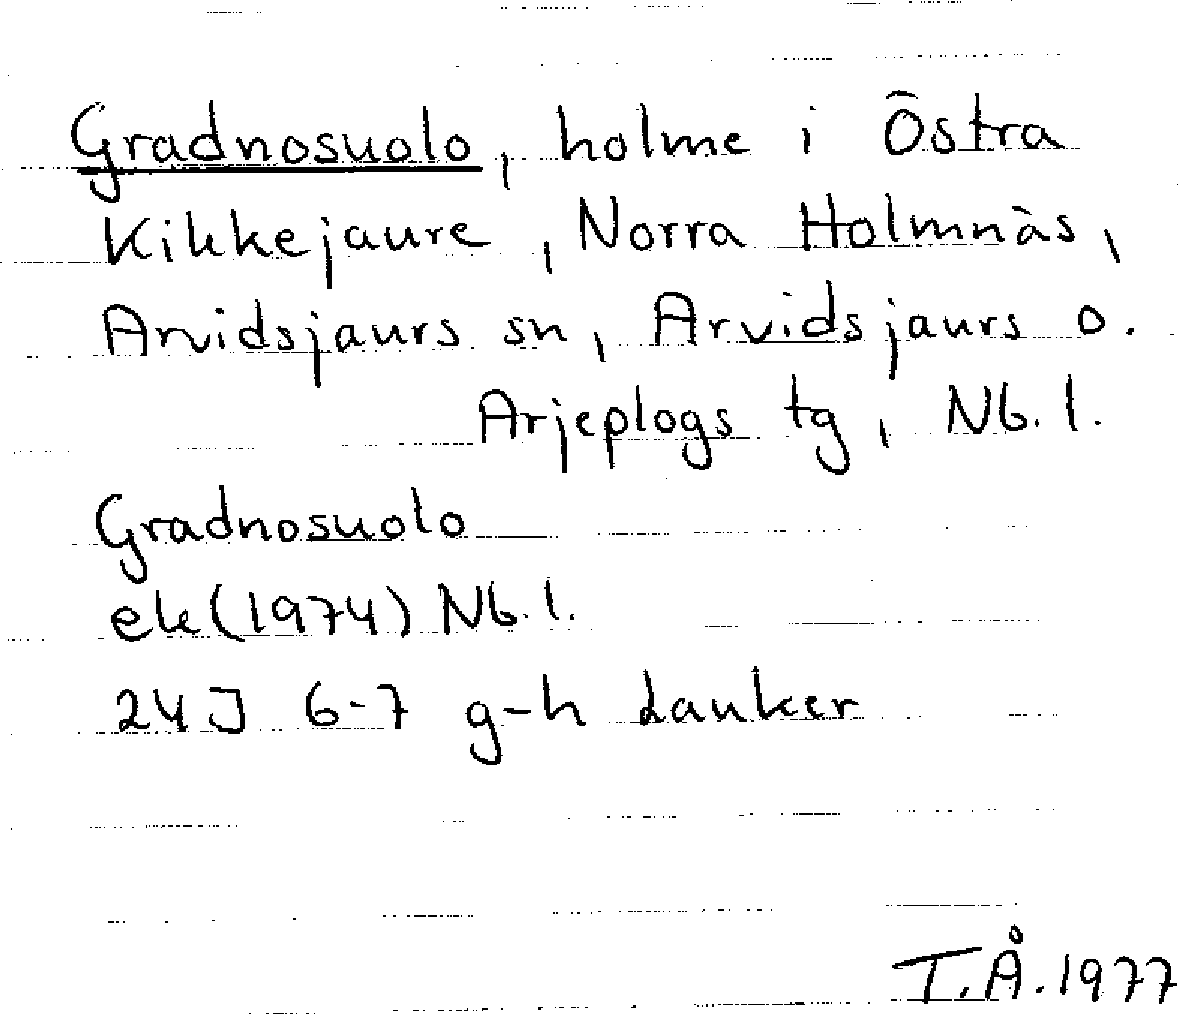 Gradnosuolo, holme i Östra
Kikkejaure, Norra Holmnäs,
Arvidsjaurs sn, Arvidsjaurs o.
Arjeplogs tg, Nb. l.
Gradnosuolo
ek (1974) Nb. l.
24 J 6-7 g-h Lauker
T.Å. 1977